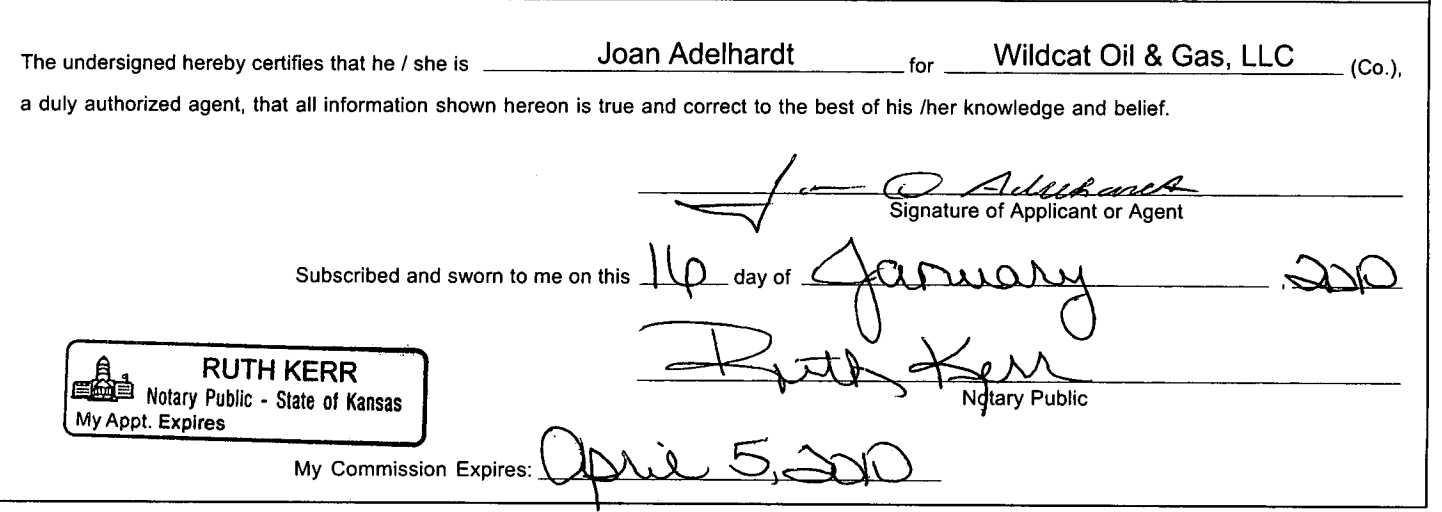 The undersigned hereby certifies that he / she is Joan Adelhardt for Wildcat Oil & Gas, LLC (Co.),
a duly authorized agent, that all information shown hereon is true and correct to the best of his /her knowledge and belief.
J Adelhardt
Signature of Applicant or Agent
Subscribed and sworn to me on this 16 day of January , 2010
Ruth Kerr
Notary Public
RUTH KERR
Notary Public - State of Kansas
My Appt. Expires
My Commission Expires: April 5, 2010